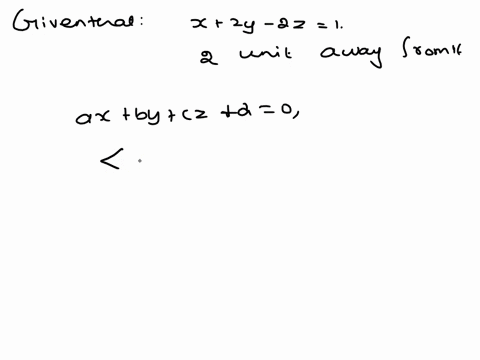 Given that: x + 2y - 2z = 1.
2 unit away from it
ax + by + cz + d = 0,
< .